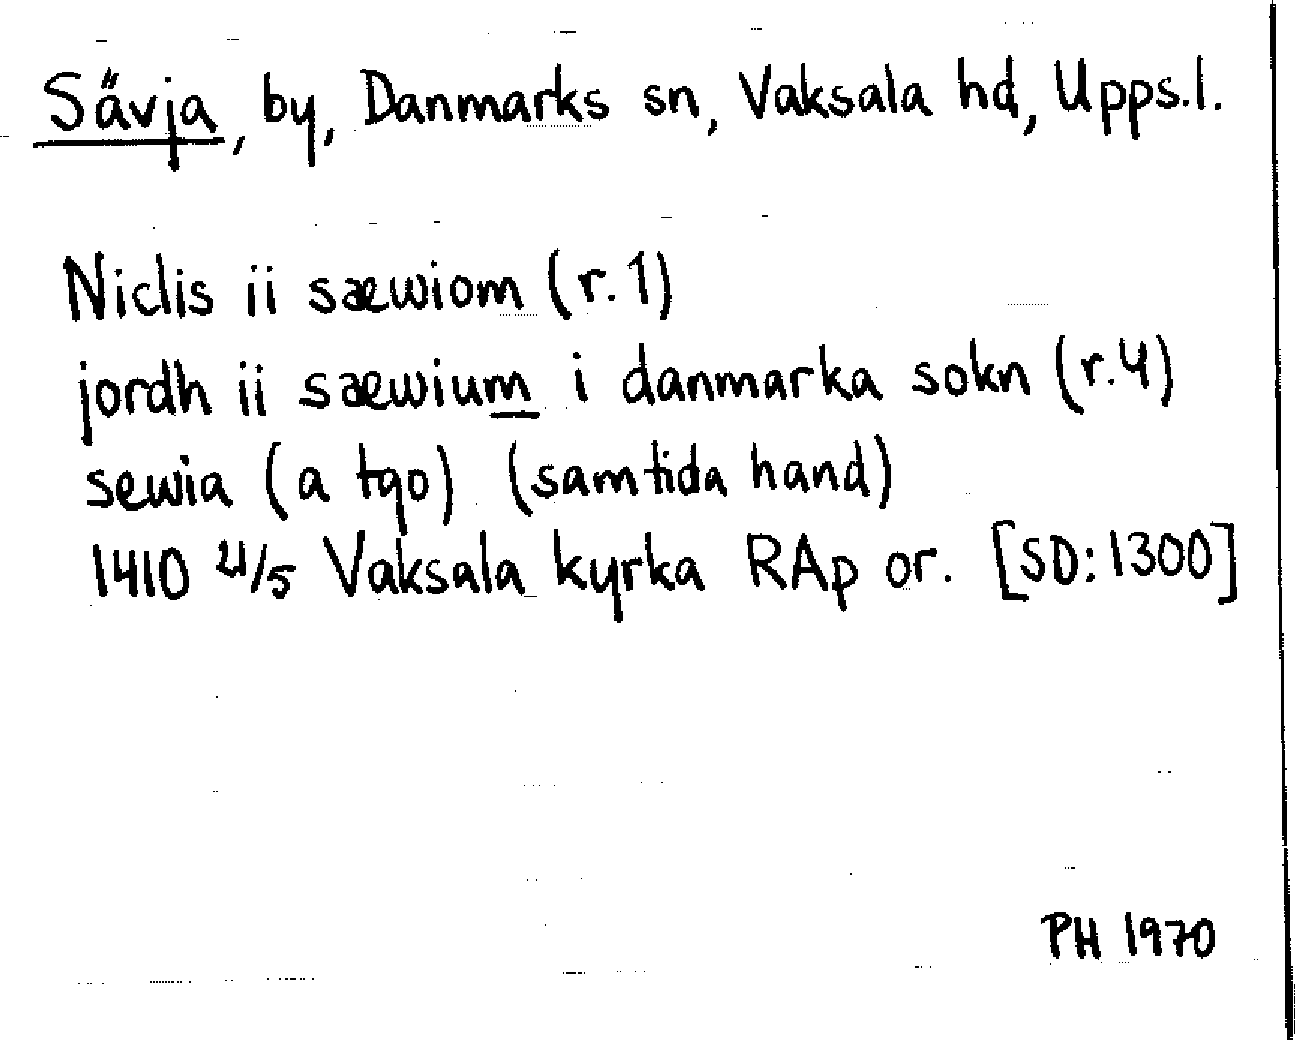 Sävja, by, Danmarks sn, Vaksala hd, Upps.l.
Niclis ii sæwiom (r.1)
jordh ii sæwium i danmarka sokn (r.4)
sewia (a tgo) (samtida hand)
1410 4/5 Vaksala kyrka RAp or. [SD:1300]
PH 1970